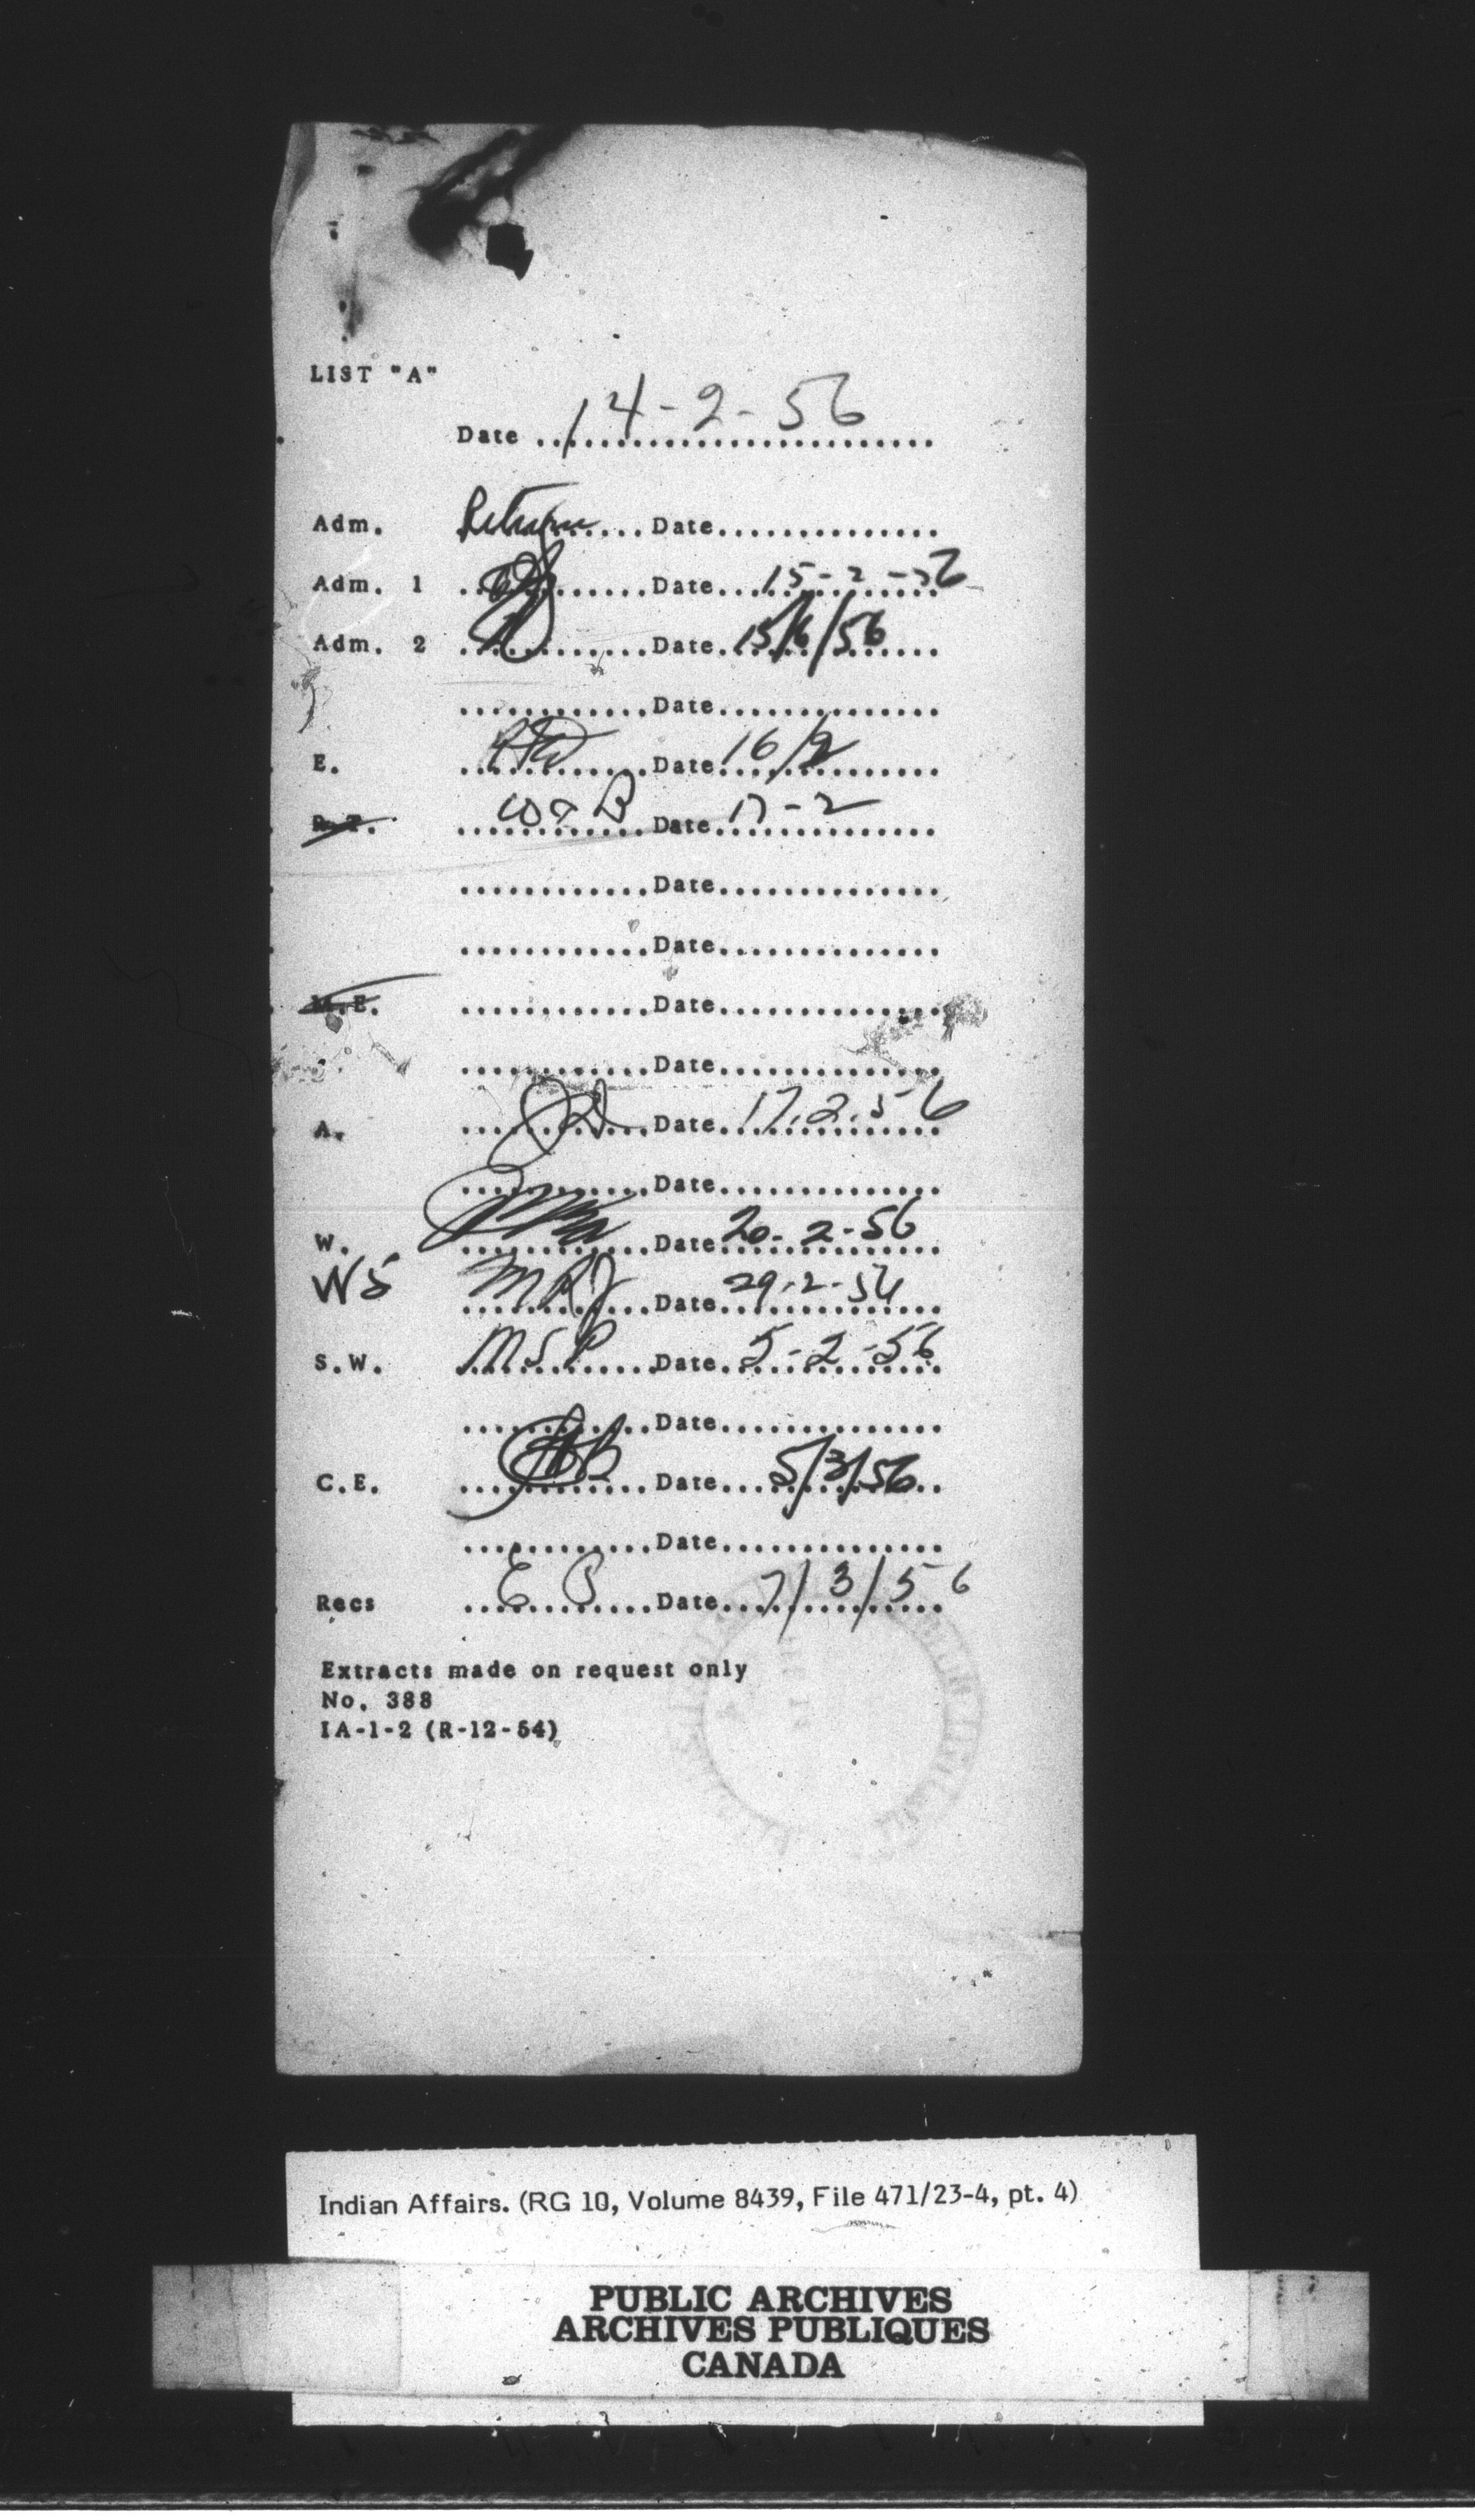 LIST "A"
Date ..14-2-56..........
Adm. Return.... Date..............
Adm. 1 ............Date...15-2-56
Adm. 2 ............Date.15/6/56......
............Date..............
E. ............Date.16/2..............
R.T. W & B Date.17-2..............
............Date..............
............Date..............
M.E. ............Date..............
............Date..............
A. ............Date..17.2.56
............Date..............
W. ............Date.20-2-56
WS MRJ Date.29-2-56
S.W. MSP Date.5-2-56
............Date..............
C.E. ............Date...5/3/56..
............Date..............
Recs E B Date...7/3/56
Extracts made on request only
No. 388
IA-1-2 (R-12-54)
Indian Affairs. (RG 10, Volume 8439, File 471/23-4, pt. 4)
PUBLIC ARCHIVES
ARCHIVES PUBLIQUES
CANADA